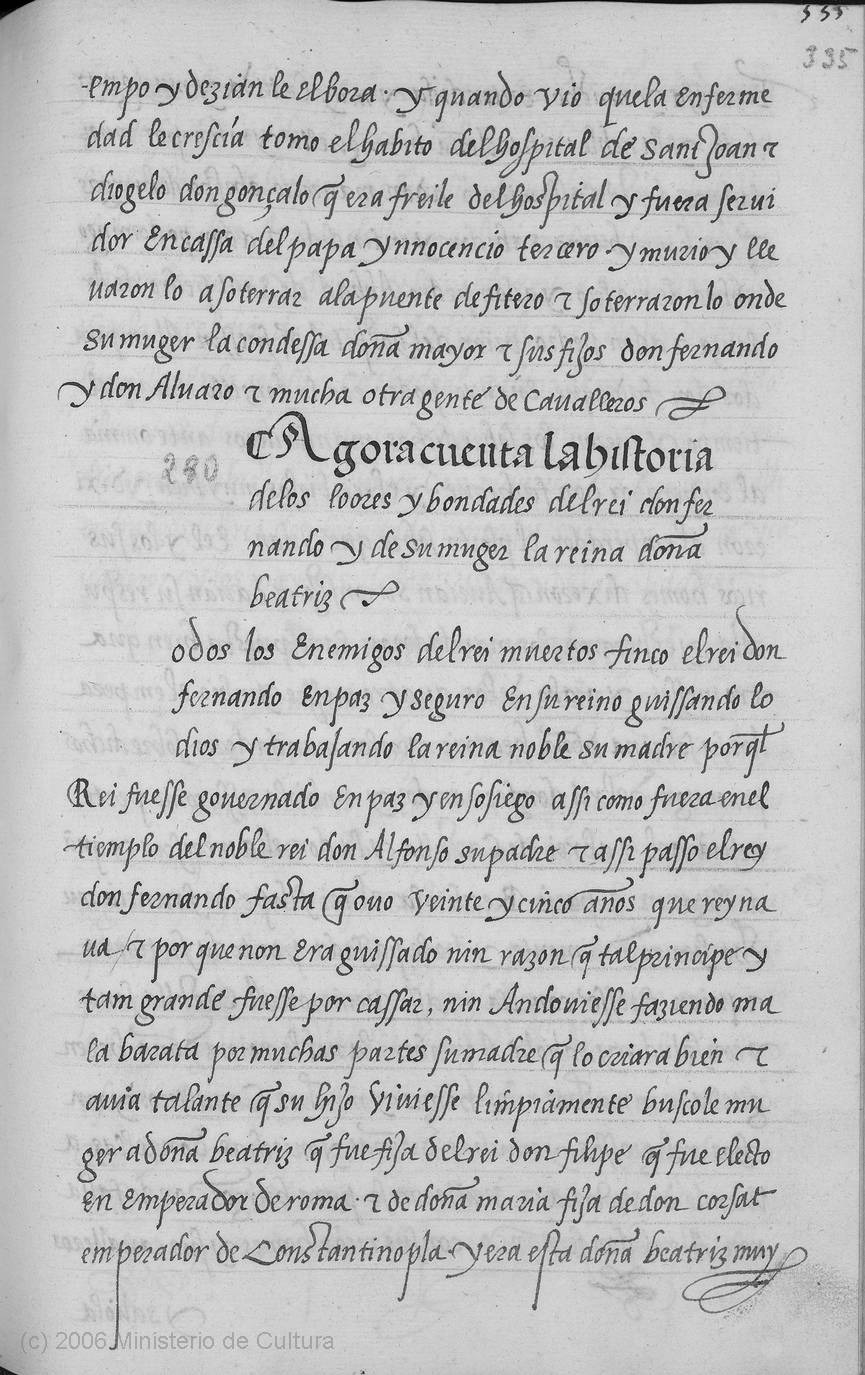 335
335
-empo y dezian le elbora. y quando vio quela enferme
dad le crescía tomo el habito del hospital de sant Joan τ
diogelo don gonçalo q̃ era freile del hospital y fuera serui
dor en cassa del papa ynnocencio tercero. y murio y lle
uaron lo a soterrar a la puente de fitero τ soterraron lo onde
su muger la condessa doña mayor τ sus fijos don fernando
y don Alvaro τ mucha otra gente de Cavalleros
280
Agora cuenta la historia
delos loores y bondades del rei don fer
nando y de su muger la reina doña
beatriz
odos los enemigos del rei muertos finco el rei don
fernando en paz y seguro en su reino guissando lo
dios y trabajando la reina noble su madre por q̃l
Rei fuesse governado en paz y en sosiego assi como fuera en el
tiemplo del noble rei don Alfonso su padre τ assi passo el rey
don fernando fasta q̃ ouo veinte y cinco años que reyna
ua τ por que non era guissado nin razon q̃ tal principe y
tam grande fuesse por cassar, nin Andouiesse faziendo ma
la barata por muchas partes su madre q̃ lo criara bien τ
auia talante q̃ su hijo viviesse limpiamente buscole mu
ger a doña beatriz q̃ fue fija del rei don filipe q̃ fue electo
en emperador de roma. τ de doña maria fija de don corsat
emperador de Constantinopla. y era esta doña beatriz muy
(c) 2006 Ministerio de Cultura